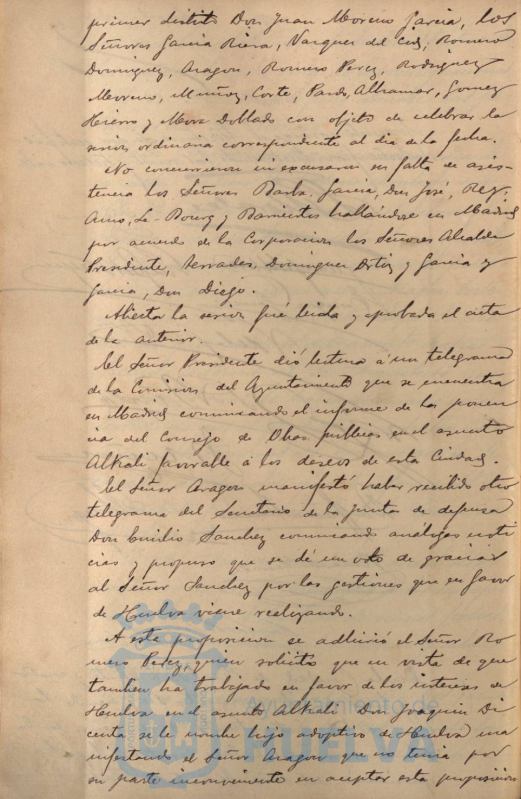 primer distrito Don Juan Moreno Garcia, los
Señores Garcia Riera, Vazquez del Cid, Romero
Dominguez, Aragon, Romero Perez, Rodriguez
Moreno, Muñoz, Corte, Pardo, Alhamar, Gomez
Hierro y Mora Doblado con objeto de celebrar la
sesion ordinaria correspondiente al dia de la fecha.
No concurrieron ni excusaron su falta de asis-
tencia los Señores Barba, Garcia, Don José, Rey,
Amo, Le-Bourg y Barrientos hallándose en Madrid
por acuerdo de la Corporacion los Señores Alcalde
Presidente, Terrades, Dominguez Ortiz y Garcia y
Garcia, Don Diego.
Abierta la sesion fué leida y aprobada el acta
de la anterior.
El Señor Presidente dió lectura á un telegrama
de la Comision del Ayuntamiento que se encuentra
en Madrid comunicando el informe de la ponen
cia del Consejo de Obras públicas en el asunto
Alkali favorable á los deseos de esta Ciudad.
El Señor Aragon manifestó haber recibido otro
telegrama del Secretario de la Junta de defensa
Don Emilio Sanchez comunicando análogas noti
cias y propuso que se dé un voto de gracias
al Señor Sanchez por las gestiones que en favor
de Huelva viene realizando.
A esta proposicion se adhirió el Señor Ro
mero Perez, quien solicito que en vista de que
tambien ha trabajado en favor de los intereses de
Huelva en el asunto Alkali Don Joaquin Di
centa se le nombre hijo adoptivo de Huelva ma
nifestando el Señor Aragon que no tenia por
su parte inconveniente en aceptar esta proposicion
Ayuntamiento de
HUELVA